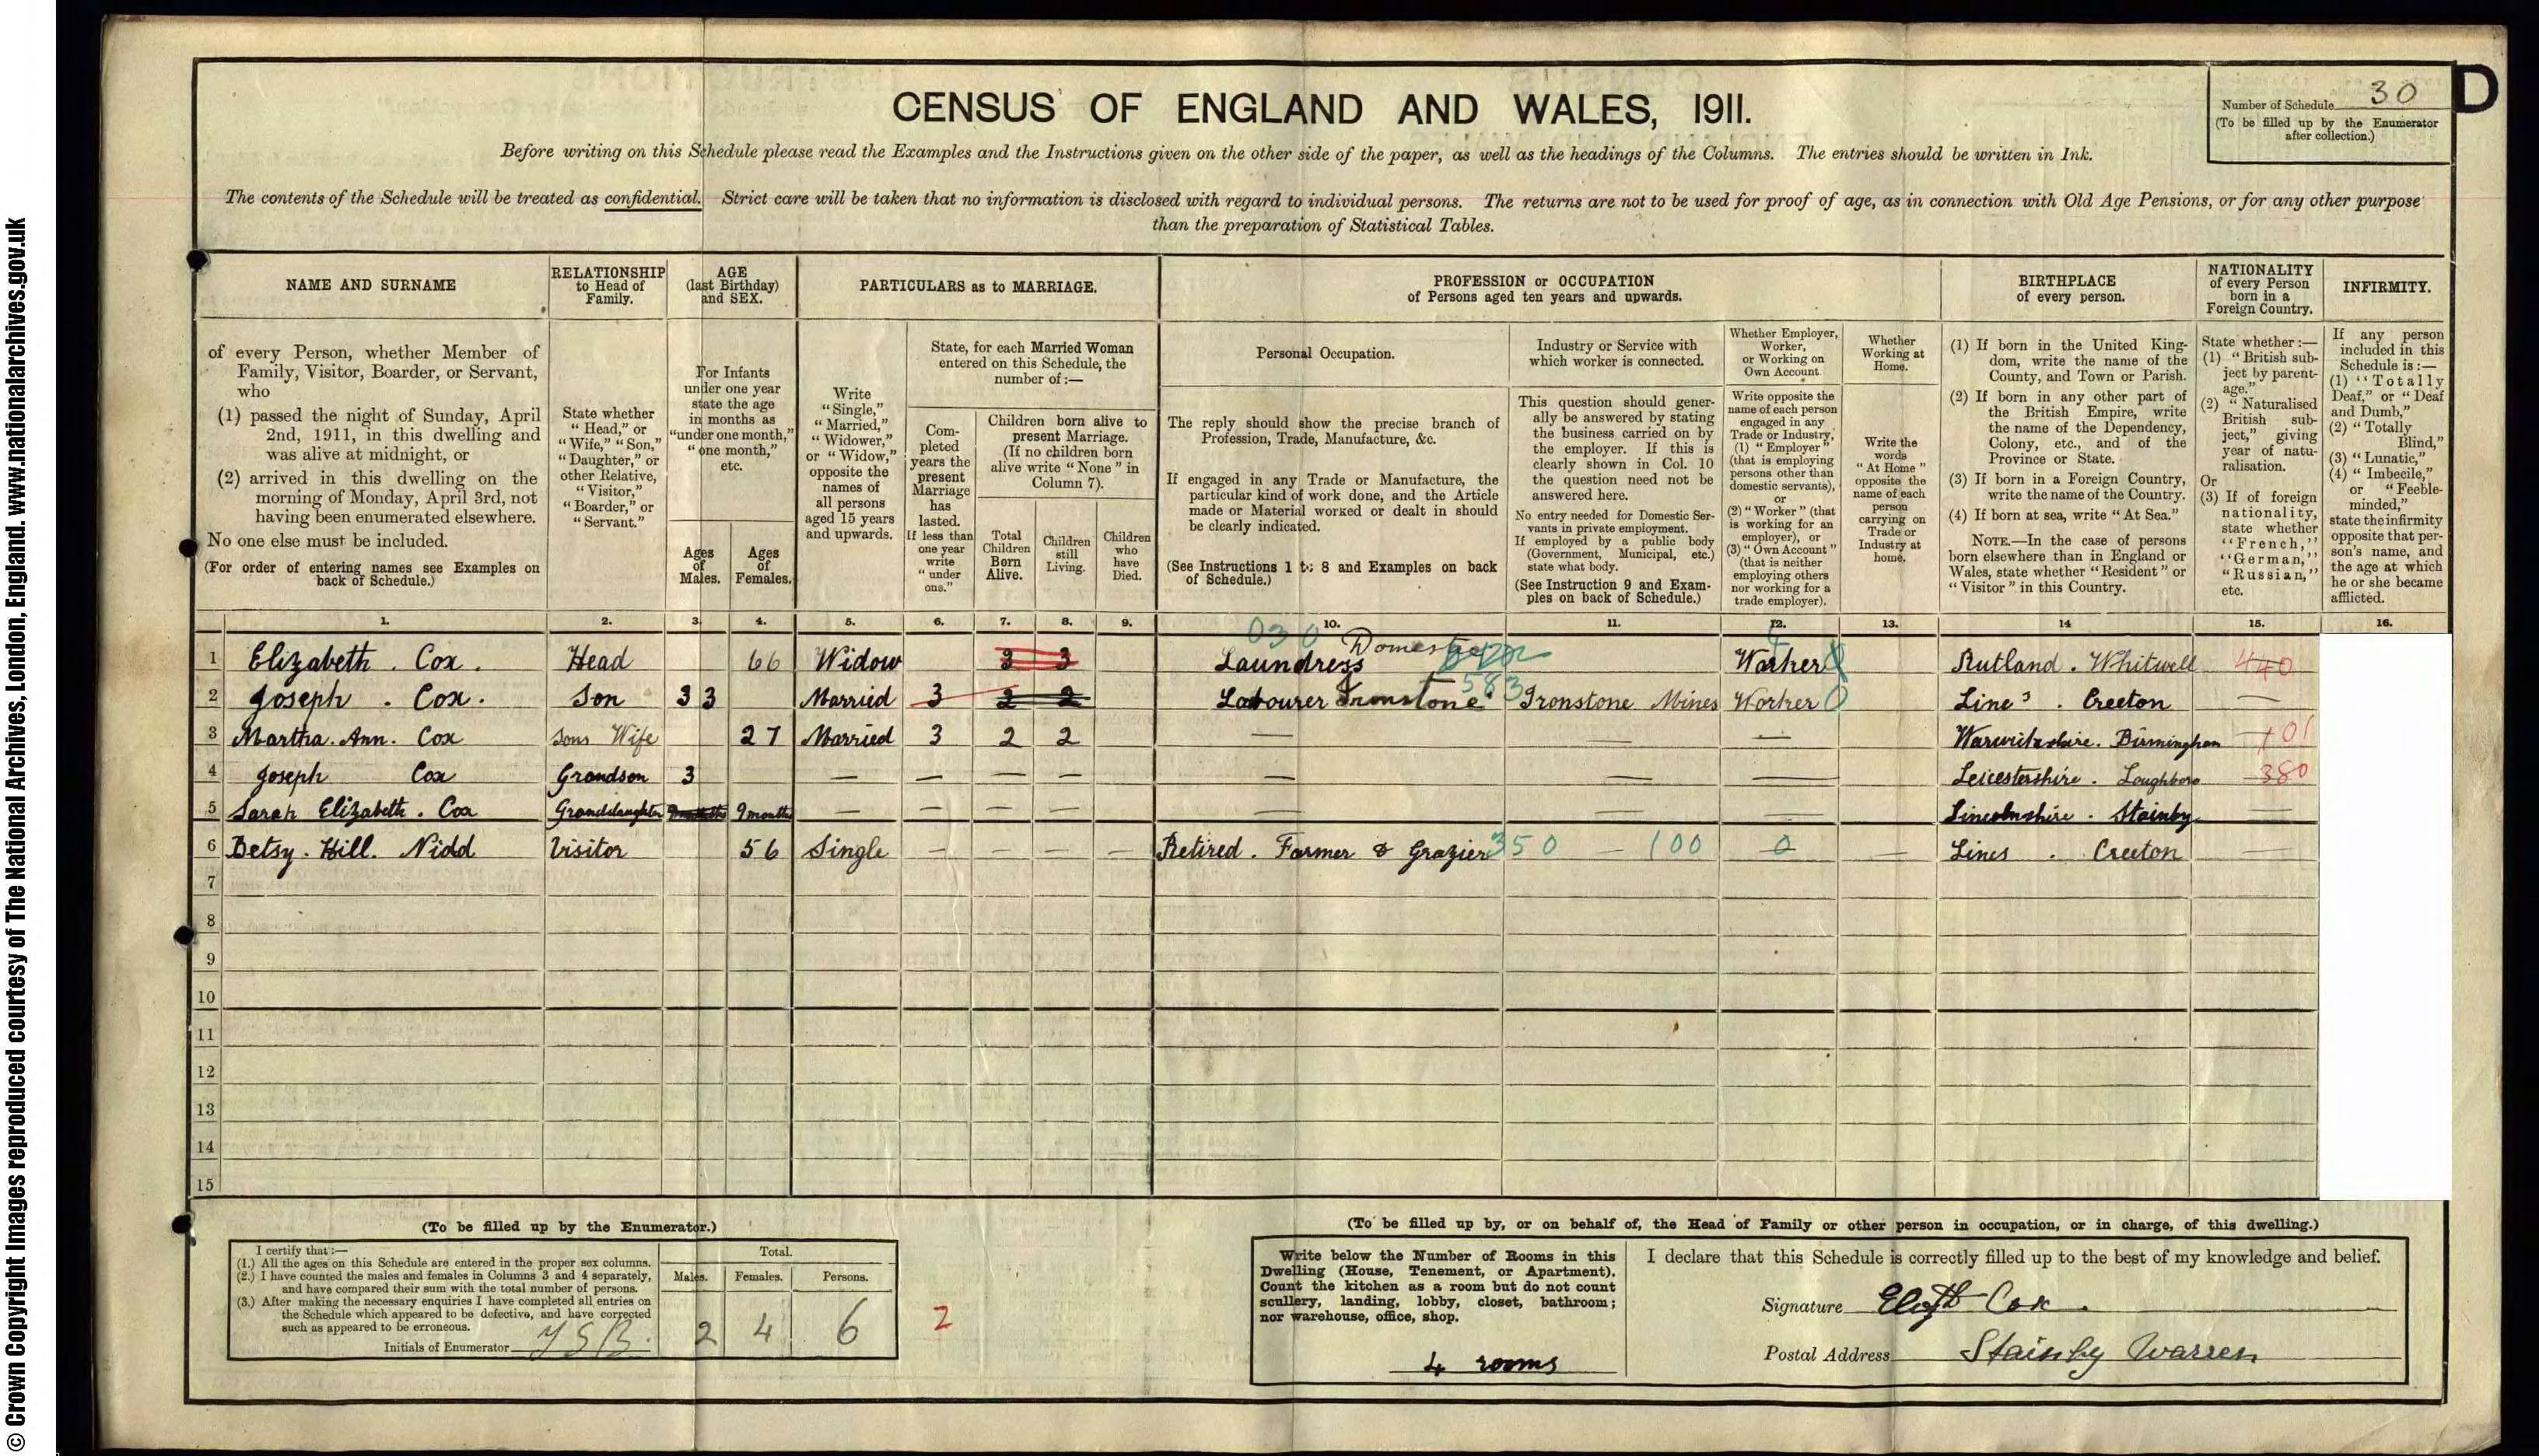 © Crown Copyright Images reproduced courtesy of The National Archives, London, England. www.nationalarchives.gov.uk
CENSUS OF ENGLAND AND WALES, 1911.
Number of Schedule 30
(To be filled up by the Enumerator
after collection.)
D
Before writing on this Schedule please read the Examples and the Instructions given on the other side of the paper, as well as the headings of the Columns. The entries should be written in Ink.
The contents of the Schedule will be treated as confidential. Strict care will be taken that no information is disclosed with regard to individual persons. The returns are not to be used for proof of age, as in connection with Old Age Pensions, or for any other purpose
than the preparation of Statistical Tables.
NAME AND SURNAME
of every Person, whether Member of
Family, Visitor, Boarder, or Servant,
who
(1) passed the night of Sunday, April
2nd, 1911, in this dwelling and
was alive at midnight, or
(2) arrived in this dwelling on the
morning of Monday, April 3rd, not
having been enumerated elsewhere.
No one else must be included.
(For order of entering names see Examples on
back of Schedule.)
RELATIONSHIP
to Head of
Family.
State whether
"Head," or
"Wife," "Son,"
"Daughter," or
other Relative,
"Visitor,"
"Boarder," or
"Servant."
AGE
(last Birthday)
and SEX.
For Infants
under one year
state the age
in months as
"under one month,"
"one month,"
etc.
Ages
of
Males.
Ages
of
Females.
PARTICULARS as to MARRIAGE.
Write
"Single,"
"Married,"
"Widower,"
or "Widow,"
opposite the
names of
all persons
aged 15 years
and upwards.
State, for each Married Woman
entered on this Schedule, the
number of:—
Com-
pleted
years the
present
Marriage
has
lasted.
If less than
one year
write
"under
one."
Children born alive to
present Marriage.
(If no children born
alive write "None" in
Column 7).
Total
Children
Born
Alive.
Children
still
Living.
Children
who
have
Died.
PROFESSION or OCCUPATION
of Persons aged ten years and upwards.
Personal Occupation.
The reply should show the precise branch of
Profession, Trade, Manufacture, &c.
If engaged in any Trade or Manufacture, the
particular kind of work done, and the Article
made or Material worked or dealt in should
be clearly indicated.
(See Instructions 1 to 8 and Examples on back
of Schedule.)
Industry or Service with
which worker is connected.
This question should gener-
ally be answered by stating
the business carried on by
the employer. If this is
clearly shown in Col. 10
the question need not be
answered here.
No entry needed for Domestic Ser-
vants in private employment.
If employed by a public body
(Government, Municipal, etc.)
state what body.
(See Instruction 9 and Exam-
ples on back of Schedule.)
Whether Employer,
Worker,
or Working on
Own Account.
Write opposite the
name of each person
engaged in any
Trade or Industry,
(1) "Employer"
(that is employing
persons other than
domestic servants),
or
(2) "Worker" (that
is working for an
employer), or
(3) "Own Account"
(that is neither
employing others
nor working for a
trade employer).
Whether
Working at
Home.
Write the
words
"At Home"
opposite the
name of each
person
carrying on
Trade or
Industry at
home.
BIRTHPLACE
of every person.
(1) If born in the United King-
dom, write the name of the
County, and Town or Parish.
(2) If born in any other part of
the British Empire, write
the name of the Dependency,
Colony, etc., and of the
Province or State.
(3) If born in a Foreign Country,
write the name of the Country.
(4) If born at sea, write "At Sea."
NOTE.—In the case of persons
born elsewhere than in England or
Wales, state whether "Resident" or
"Visitor" in this Country.
NATIONALITY
of every Person
born in a
Foreign Country.
State whether:—
(1) "British sub-
ject by parent-
age."
(2) "Naturalised
British sub-
ject," giving
year of natu-
ralisation.
Or
(3) If of foreign
nationality,
state whether
"French,"
"German,"
"Russian,"
etc.
INFIRMITY.
If any person
included in this
Schedule is:—
(1) "Totally
Deaf," or "Deaf
and Dumb,"
(2) "Totally
Blind,"
(3) "Lunatic,"
(4) "Imbecile,"
or "Feeble-
minded,"
state the infirmity
opposite that per-
son's name, and
the age at which
he or she became
afflicted.
1. 2. 3. 4. 5. 6. 7. 8. 9. 10. 11. 12. 13. 14 15. 16.
030 Domestic
1 Elizabeth. Cox. Head 66 Widow 3 3 Laundress Worker Rutland. Whitwell 440
2 Joseph. Cox. Son 33 Married 3 2 2 Labourer Ironstone 583 Ironstone Mines Worker 0 Lincs. Creeton —
3 Martha. Ann. Cox Sons Wife 27 Married 3 2 2 — — — Warwickshire. Birmingham 101
4 Joseph Cox Grandson 3 — — — — — — — Leicestershire. Loughboro 380
5 Sarah Elizabeth. Cox Granddaughter 9 months — — — — — — — Lincolnshire. Stainby —
6 Betsy. Hill. Nidd Visitor 56 Single — — — — Retired. Farmer & Grazier 350 — 100 0 — Lincs. Creeton —
7
8
9
10
11
12
13
14
15
(To be filled up by the Enumerator.)
I certify that:—
(1.) All the ages on this Schedule are entered in the proper sex columns.
(2.) I have counted the males and females in Columns 3 and 4 separately,
and have compared their sum with the total number of persons.
(3.) After making the necessary enquiries I have completed all entries on
the Schedule which appeared to be defective, and have corrected
such as appeared to be erroneous.
Initials of Enumerator
Total.
Males. Females. Persons.
2 4 6
2
(To be filled up by, or on behalf of, the Head of Family or other person in occupation, or in charge, of this dwelling.)
Write below the Number of Rooms in this
Dwelling (House, Tenement, or Apartment).
Count the kitchen as a room but do not count
scullery, landing, lobby, closet, bathroom;
nor warehouse, office, shop.
4 rooms
I declare that this Schedule is correctly filled up to the best of my knowledge and belief.
Signature Elizth Cox.
Postal Address Stainby Warren